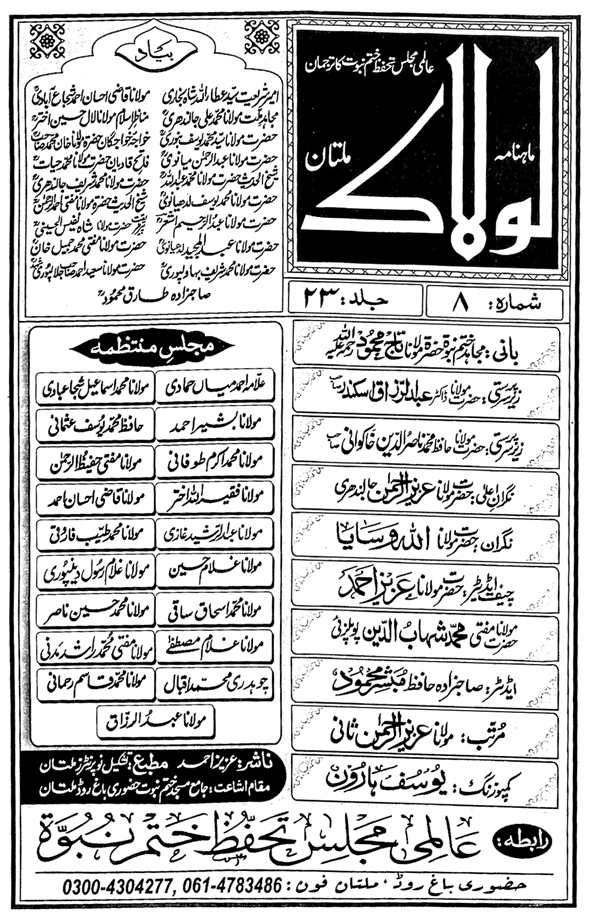 عالمی مجلس تحفظ ختم نبوت کا ترجمان
ماہنامہ
لولاک
ملتان
شماره: ۸
جلد: ۲۳
بیاد
امیر شریعت سید عطاء اللہ شاہ بخاریؒ
مولانا قاضی احسان احمد شجاع آبادیؒ
مجاہد ملت مولانا محمد علی جالندھریؒ
مناظر اسلام مولانا لال حسین اخترؒ
حضرت مولانا سید محمد یوسف بنوریؒ
خواجہ خواجگان حضرت مولانا خان محمد صاحبؒ
حضرت مولانا عبدالرحمن میانویؒ
فاتح قادیان حضرت مولانا محمد حیاتؒ
شیخ الحدیث حضرت مولانا محمد عبداللہؒ
حضرت مولانا محمد شریف جالندھریؒ
حضرت مولانا محمد یوسف لدھیانویؒ
شیخ الحدیث حضرت مولانا مفتی احمد الرحمنؒ
حضرت مولانا عبدالرحیم اشعرؒ
حضرت مولانا شاہ نفیس الحسینیؒ
حضرت مولانا عبدالمجید لدھیانویؒ
حضرت مولانا مفتی محمد جمیل خانؒ
حضرت مولانا محمد شریف بہاولپوریؒ
حضرت مولانا سعید احمد صاحب جلالپوریؒ
صاحبزادہ طارق محمودؒ
بانی: مجاہد ختم نبوۃ حضرۃ مولانا تاج محمود رحمۃ اللہ علیہ
زیر سرپرستی: حضرت مولانا ڈاکٹر عبدالرزاق اسکندر صاحب
زیر سرپرستی: حضرت مولانا حافظ محمد ناصر الدین خاکوانی صاحب
نگران اعلیٰ: حضرت مولانا عزیز الرحمن جالندھری
نگران: حضرت مولانا اللہ وسایا
چیف ایڈیٹر: حضرت مولانا عزیز احمد
حضرت مولانا مفتی محمد شہاب الدین پوپلزئی
ایڈیٹر: صاحبزادہ حافظ مبشر محمود
مرتب: مولانا عزیز الرحمن ثانی
کمپوزنگ: یوسف ہارون
مجلس منتظمہ
علامہ احمد میاں حمادی
مولانا محمد اسماعیل شجاعبادی
مولانا بشیر احمد
حافظ محمد یوسف عثمانی
مولانا محمد اکرم طوفانی
مولانا مفتی حفیظ الرحمن
مولانا فقیر اللہ اختر
مولانا قاضی احسان احمد
مولانا عبدالرشید غازی
مولانا محمد طیب فاروقی
مولانا غلام حسین
مولانا غلام رسول دینپوری
مولانا محمد اسحاق ساقی
مولانا محمد حسین ناصر
مولانا غلام مصطفےٰ
مولانا مفتی محمد راشد مدنی
چوہدری محمد اقبال
مولانا محمد قاسم رحمانی
مولانا عبدالرزاق
ناشر: عزیز احمد مطبع: تشکیل نو پرنٹرز ملتان
مقام اشاعت: جامع مسجد ختم نبوت حضوری باغ روڈ ملتان
رابطہ: عالمی مجلس تحفظ ختم نبوۃ
حضوری باغ روڈ، ملتان فون: 0300-4304277, 061-4783486